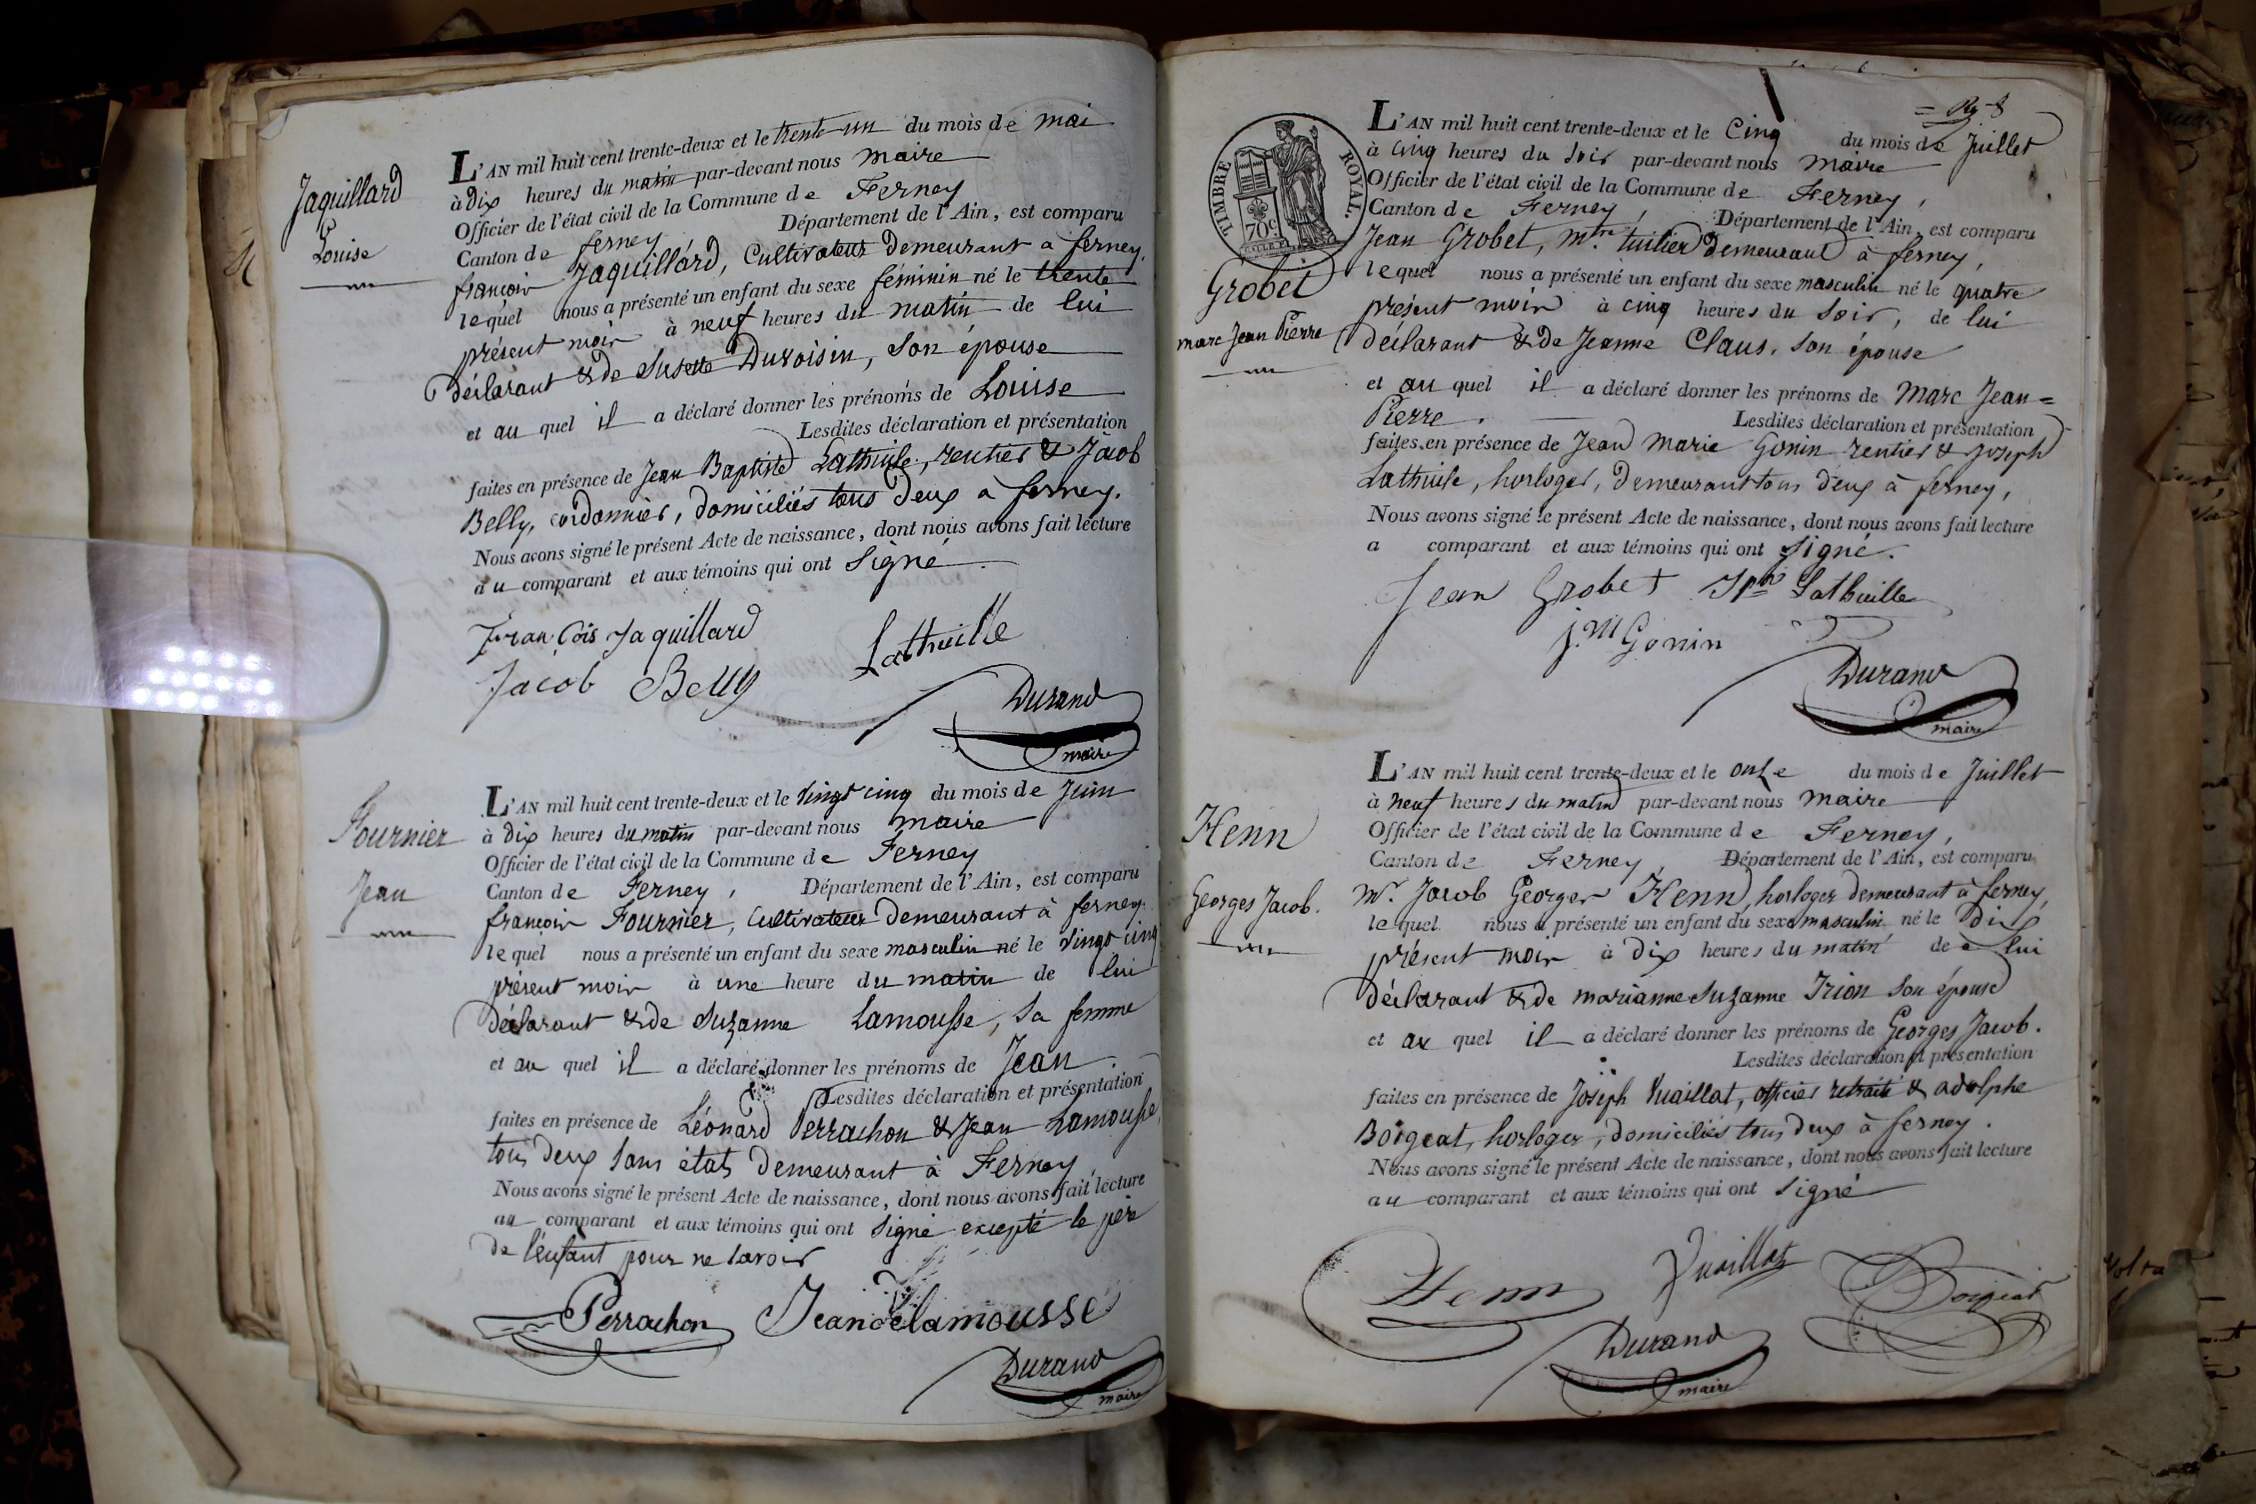 Jaquillard
Louise
L'AN mil huit cent trente-deux et le trente-un du mois de mai
à dix heures du matin par-devant nous maire
Officier de l'état civil de la Commune de Ferney
Canton de ferney Département de l'Ain, est comparu
françois Jaquillard, Cultivateur demeurant a ferney,
lequel nous a présenté un enfant du sexe féminin né le trente
présent mois à neuf heures du matin de lui
déclarant & de Susette Duvoisin, son épouse
et au quel il a déclaré donner les prénoms de Louise
Lesdites déclaration et présentation
faites en présence de Jean Baptiste Lathuile, rentier & Jacob
Belly, cordonnier, domiciliés tous deux a ferney.
Nous avons signé le présent Acte de naissance, dont nous avons fait lecture
au comparant et aux témoins qui ont signé.
François Jaquillard
Lathuille
Jacob Belly
Durand
maire
Fournier
Jean
L'AN mil huit cent trente-deux et le vingt cinq du mois de Juin
à dix heures du matin par-devant nous maire
Officier de l'état civil de la Commune de Ferney
Canton de Ferney, Département de l'Ain, est comparu
françois Fournier, Cultivateur demeurant à ferney.
lequel nous a présenté un enfant du sexe masculin né le vingt cinq
présent mois à une heure du matin de lui
déclarant & de Suzanne Lamousse, sa femme
et au quel il a déclaré donner les prénoms de Jean
Lesdites déclaration et présentation
faites en présence de Léonard Perrachon & Jean Lamousse
tous deux sans état, demeurant à Ferney,
Nous avons signé le présent Acte de naissance, dont nous avons fait lecture
au comparant et aux témoins qui ont signé excepté le père
de l'enfant pour ne savoir
Perrachon Jean delamousse
Durand
maire
TIMBRE ROYAL.
70c.
Grobet
marc Jean Pierre
L'AN mil huit cent trente-deux et le Cinq du mois de Juillet
à cinq heures du soir par-devant nous maire
Officier de l'état civil de la Commune de Ferney,
Canton de Ferney, Département de l'Ain, est comparu
Jean Grobet, Me. tuilier demeurant à ferney,
lequel nous a présenté un enfant du sexe masculin né le quatre
présent mois à cinq heures du soir, de lui
déclarant & de Jeanne Claus, son épouse
et au quel il a déclaré donner les prénoms de Marc Jean=
Pierre. Lesdites déclaration et présentation
faites en présence de Jean Marie Gonin rentier & Joseph
Lathuile, horloger, demeurant tous deux à ferney,
Nous avons signé le présent Acte de naissance, dont nous avons fait lecture
a comparant et aux témoins qui ont signé.
Jean Grobet Jph Lathuille
j. M Gonin
Durand
maire
Henn
Georges Jacob.
L'AN mil huit cent trente-deux et le onze du mois de Juillet
à neuf heures du matin par-devant nous maire
Officier de l'état civil de la Commune de Ferney,
Canton de Ferney, Département de l'Ain, est comparu
Mr. Jacob Georges Henn, horloger demeurant à ferney,
lequel nous a présenté un enfant du sexe masculin né le dix
présent mois à dix heures du matin de lui
déclarant & de marianne Suzanne Trion son épouse
et au quel il a déclaré donner les prénoms de Georges Jacob.
Lesdites déclaration et présentation
faites en présence de Joseph Vuaillat, officier retraité & adolphe
Borgeat, horloger, domiciliés tous deux à ferney.
Nous avons signé le présent Acte de naissance, dont nous avons fait lecture
au comparant et aux témoins qui ont signé
Henn Vuaillat Borgeat
Durand
maire